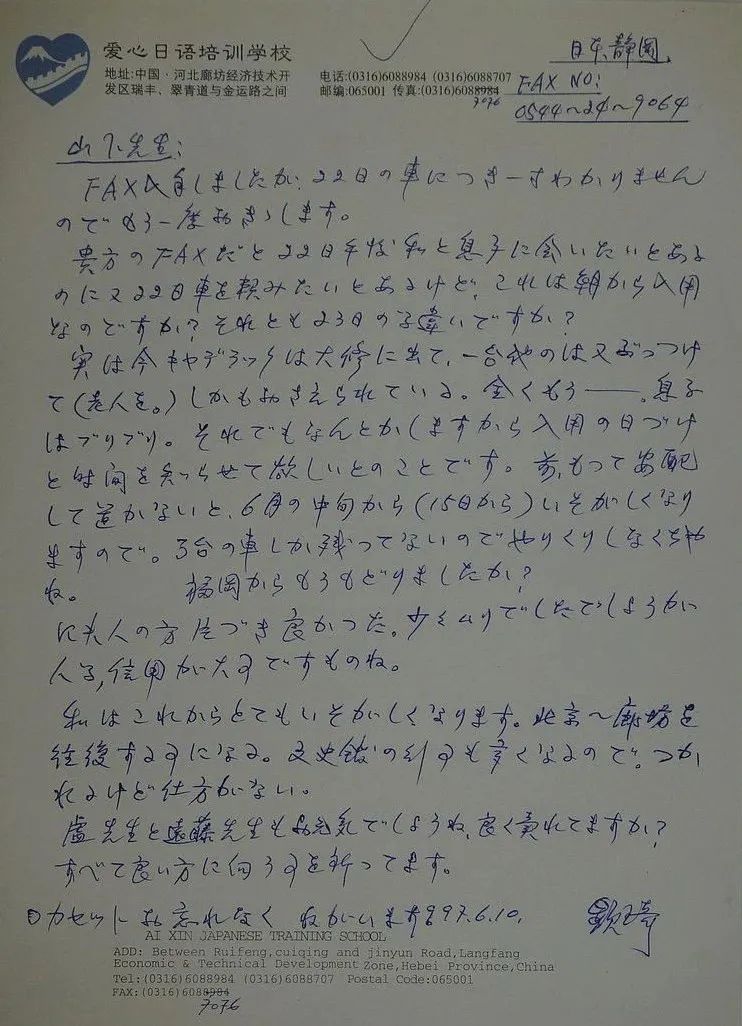 爱心日语培训学校
地址:中国·河北廊坊经济技术开
发区瑞丰、翠青道与金运路之间
电话:(0316)6088984 (0316)6088707
邮编:065001 传真:(0316)6088984
7076
日本静岡
FAX NO:
0544~24~9064
山下先生:
FAX入手しましたが、22日の車につき一寸わかりません
のでもう一度おききします。
貴方のFAXだと22日午後私と息子に会いたいとある
のに又22日車を頼みたいとあるけど、これは朝から入用
なのですか?それとも23日の字違いですか?
実は今キャデラックは大修に出て、一台他のは又ぶっつけ
て(老人を。)しかもおさえられている。全くもう——。息子
はブリブリ。それでもなんとかしますから入用の日づけ
と时间を知らせて欲しいとのことです。前もって安配
して置かないと、6月の中旬から(15日から)いそがしくなり
ますので。3台の車しか残ってないのでやりくりしなくちゃ
ね。 福岡からもうもどりましたか?
の方片づき良かった。少々ムリでしたでしょうが
人は信用が大事ですものね。
私はこれからとてもいそがしくなります。北京~廊坊を
往復する事になる。文史館の的事も多くなるので。つか
れるけど仕方がない。
盧先生と遠藤先生もお元気でしょうね、良く売れてますか?
すべて良い方に向う事を祈ってます。
カセットお忘れなく ねがいます 997.6.10. 顕琦
AI XIN JAPANESE TRAINING SCHOOL
ADD: Between Ruifeng,cuiqing and jinyun Road,Langfang
Economic & Technical Development Zone,Hebei Province,China
Tel:(0316)6088984 (0316)6088707 Postal Code:065001
FAX:(0316)6088984
7076